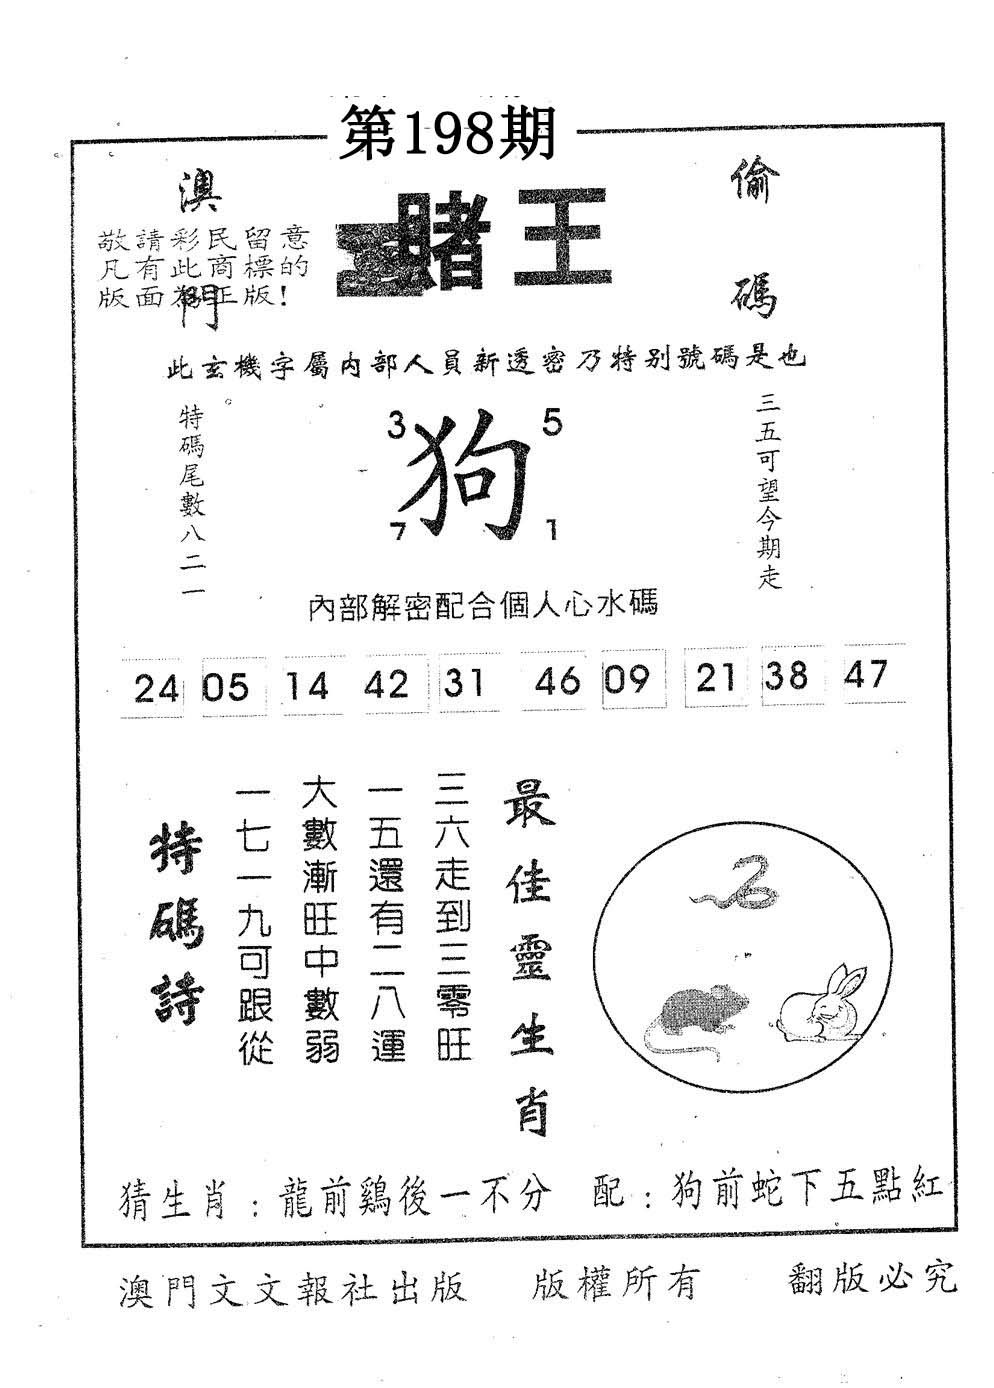 第198期
澳門
賭王
偷碼
敬請彩民留意
凡有此商標的
版面為正版!
此玄機字屬内部人員新透密乃特别號碼是也
特碼尾數八二一
3 5
狗
7 1
三五可望今期走
內部解密配合個人心水碼
24 05 14 42 31 46 09 21 38 47
最佳靈生肖
三六走到三零旺
一五還有二八運
大數漸旺中數弱
一七一九可跟從
特碼詩
猜生肖:龍前鷄後一不分 配:狗前蛇下五點紅
澳門文文報社出版 版權所有 翻版必究